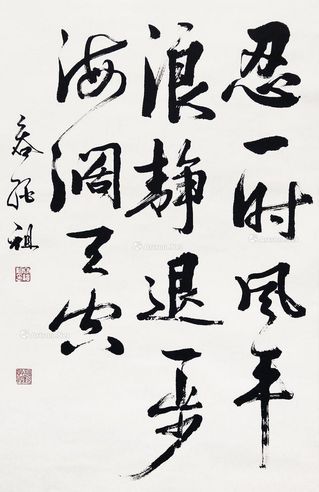 忍一时风平
浪静退一步
海阔天空
祖